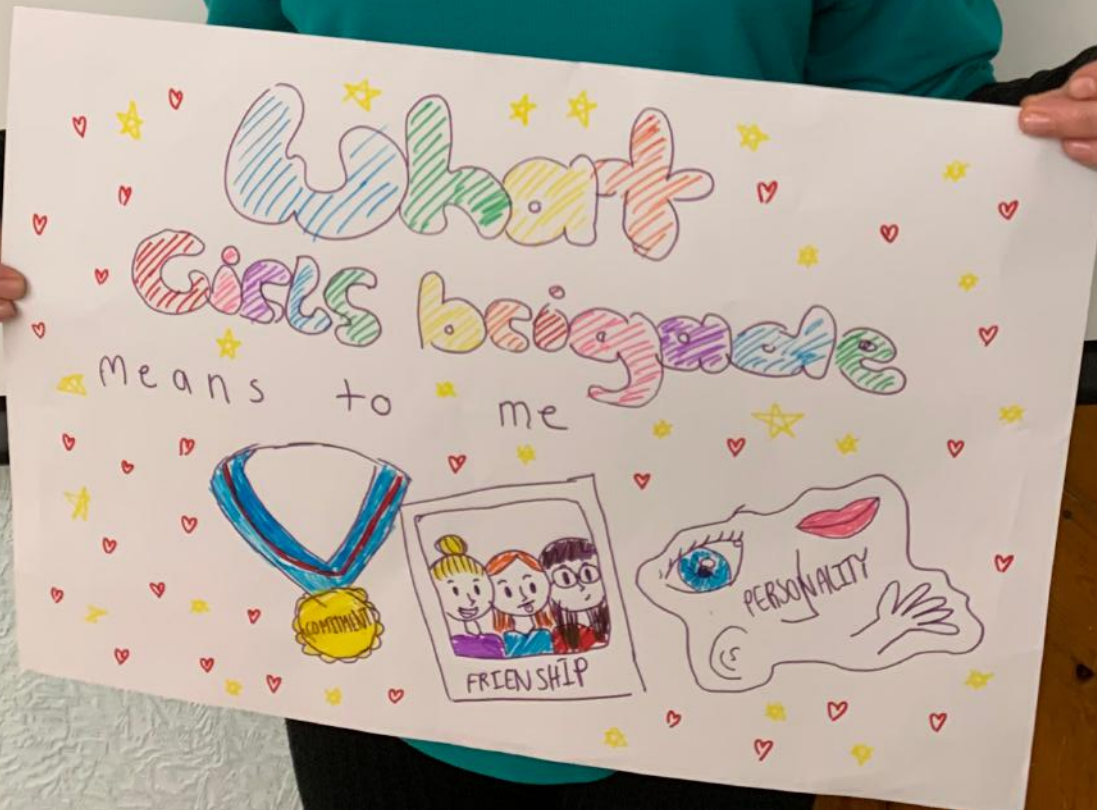 What
Girls brigade
means to me
COMITMENT
FRIENSHIP
PERSONALITY